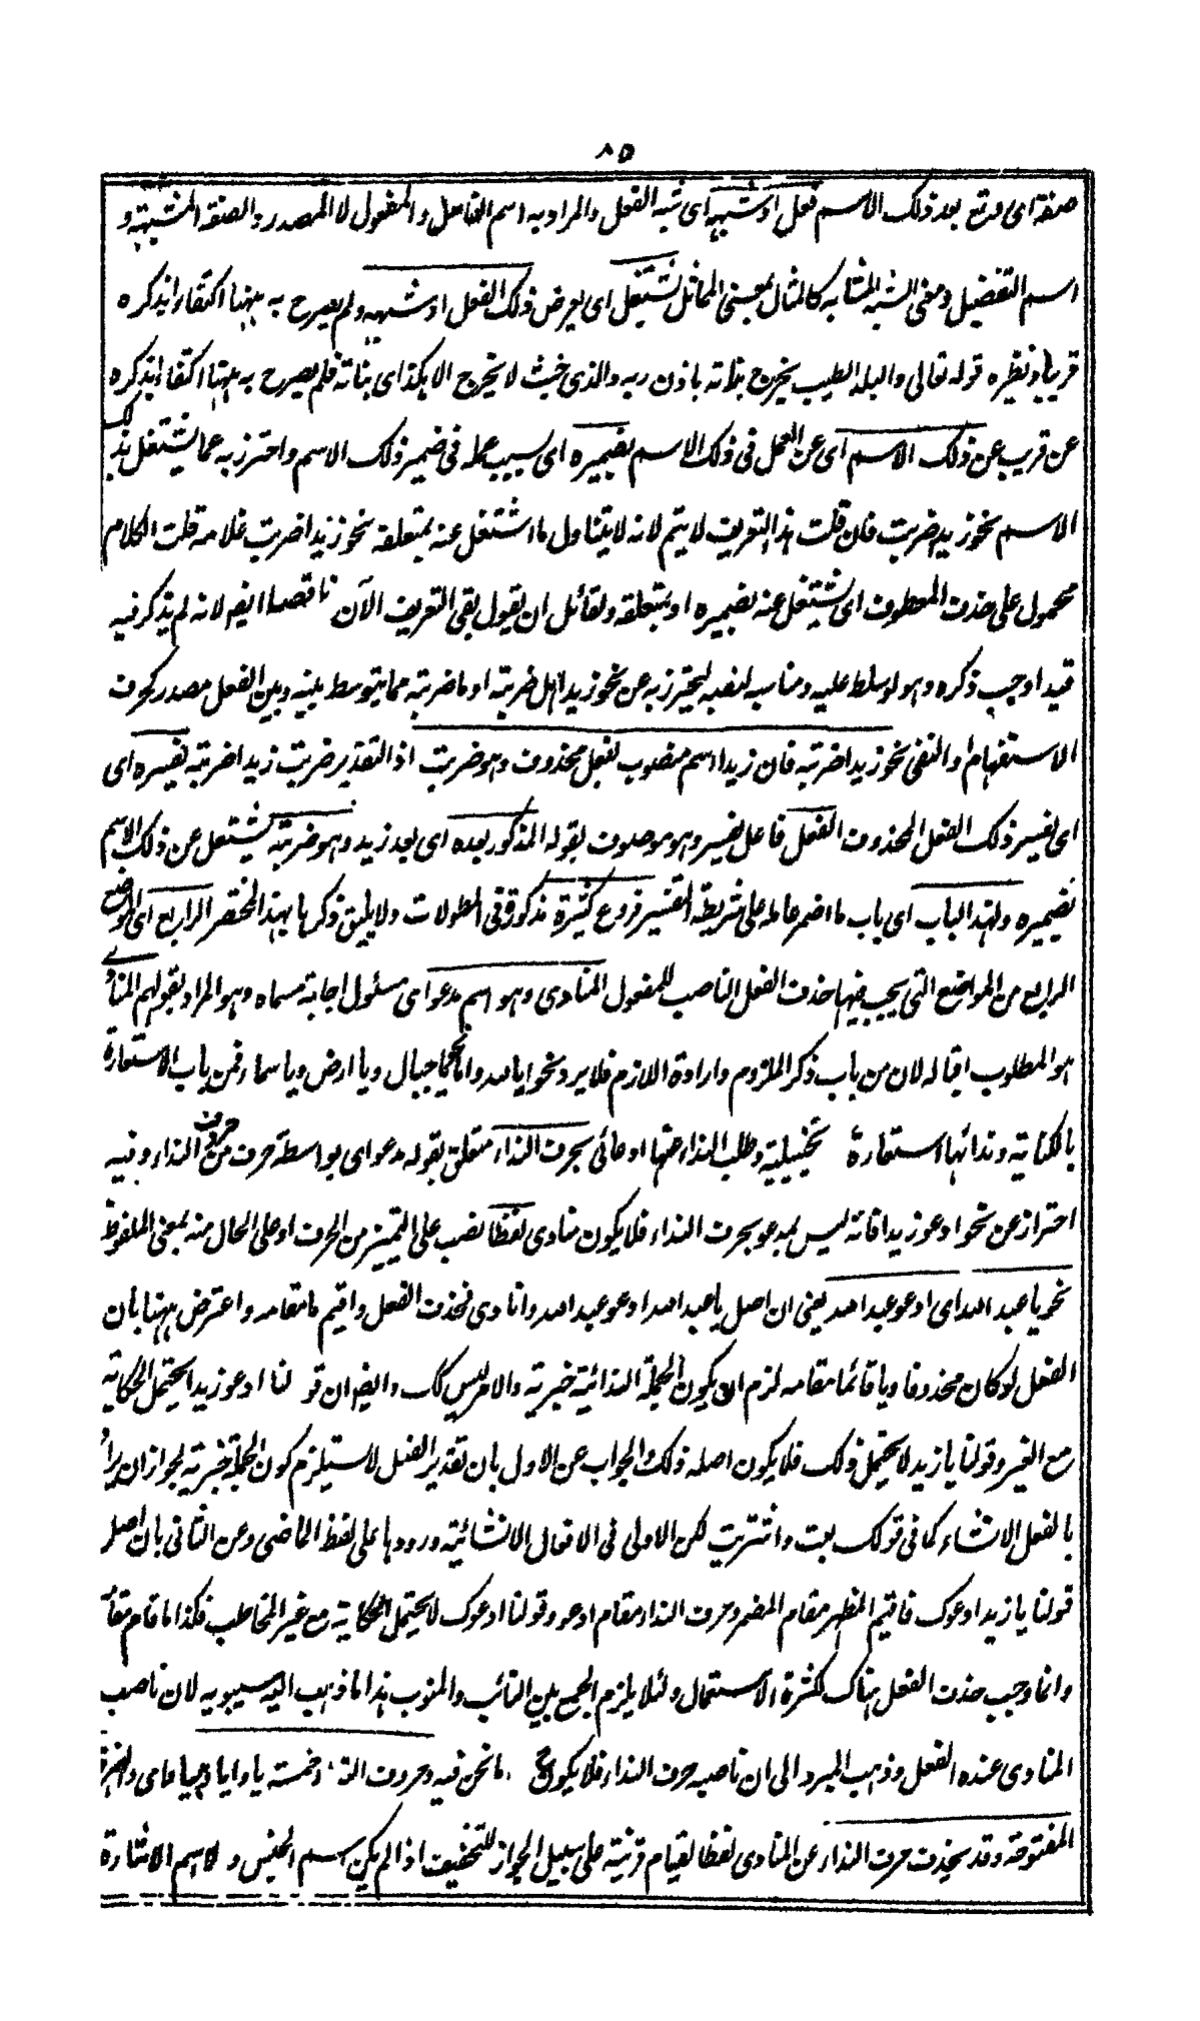 ٨٥
صفة اى وقع بعد ذلك الاسم فعل او شبهه اى شبه الفعل والمراد به اسم الفاعل والمفعول لا المصدر والصفة المشبهة و
اسم التفضيل ومعنى الشبه المشابه كالمثال بمعنى المماثل يشتغل اى يعرض ذلك الفعل او شبهه ولم يصرح به ههنا اكتفاء بذكره
قريبا ونظيره قوله تعالى والبلد الطيب يخرج نباته باذن ربه والذى خبث لا يخرج الا نكدا اى نباته فلم يصرح به ههنا اكتفاء بذكره
عن قريب عن ذلك الاسم اى عن العمل فى ذلك الاسم بضميره اى بسبب عمله فى ضمير ذلك الاسم واحترز به عما يشتغل بذلك
الاسم نحو زيدا ضربت فان قلت هذا التعريف لا يتم لانه لا يتناول ما اشتغل عنه بمتعلقه نحو زيدا ضربت غلامه قلت الكلام
محمول على حذف المعطوف اى يشتغل عنه بضميره او بمتعلقه ولقائل ان يقول بقى التعريف الآن ناقصا ايضا لانه لم يذكر فيه
قيدا وجب ذكره وهو لو سلط عليه ومناسبه لنصبه ليحترز به عن نحو زيدا هل ضربته او ما ضربته مما يتوسط بينه وبين الفعل مصدر كحرف
الاستفهام والنفى نحو زيدا ضربته فان زيدا اسم منصوب بفعل محذوف وهو ضربت اذ التقدير ضربت زيدا ضربته تفسيره اى
اى يفسر ذلك الفعل المحذوف الفعل فاعل يفسر وهو موصوف بقوله المذكور بعده اى بعد زيد وهو ضربته يشتغل عن ذلك الاسم
بضميره ولهذا الباب اى باب ما اضمر عامله على شريطة التفسير فروع كثيرة مذكورة فى المطولات ولا يليق ذكرها بهذا المختصر الرابع اى الموضع
الرابع من المواضع التى يجب فيها حذف الفعل الناصب للمفعول المنادى وهو اسم مدعو اى مسئول اجابة مسماه وهو المراد بقولهم المنادى
هو المطلوب اقباله لان من باب ذكر الملزوم وارادة اللازم فلا يرد نحو يا الله واما نحو يا جبال ويا ارض ويا سماء فمن باب الاستعارة
بالكناية وندائها استعارة تخييلية وطلب النداء عنها ادعائى بحرف النداء متعلق بقوله مدعو اى بواسطة حرف من حروف النداء وفيه
احتراز عن نحو ادعو زيدا فانه ليس بمدعو بحرف النداء فلا يكون منادى لفظا نصب على التمييز من الحرف او على الحال منه بمعنى الملفوظ
نحو يا عبد الله اى ادعو عبد الله يعنى ان اصل يا عبد الله ادعو عبد الله وانادى فحذف الفعل واقيم يا مقامه واعترض ههنا بان
الفعل لو كان محذوفا ويا قائما مقامه لزم ان يكون الجملة الندائية خبرية والامر ليس كك وايضا ان قولنا ادعو زيدا يحتمل الحكاية
مع الغير وقولنا يا زيد لا يحتمل ذلك فلا يكون اصله ذلك والجواب عن الاول بان تقدير الفعل لا يستلزم كون الجملة خبرية لجواز ان يراد
بالفعل الانشاء كما فى قولك بعت واشتريت لكن الاولى فى الافعال الانشائية ورودها على لفظ الماضى وعن الثانى بان اصل
قولنا يا زيد ادعوك فاقيم المظهر مقام المضمر وحرف النداء مقام ادعو وقولنا ادعوك لا يحتمل الحكاية مع غير المخاطب فكذا ما قام مقامه
وانما وجب حذف الفعل هناك لكثرة الاستعمال ولئلا يلزم الجمع بين النائب والمنوب هذا ما ذهب اليه سيبويه لان ناصب
المنادى عنده الفعل وذهب المبرد الى ان ناصبه حرف النداء فلا يكون مما نحن فيه وحروف النداء خمسة يا وايا وهيا واى والهمزة
المفتوحة وقد يحذف حرف النداء عن المنادى لفظا لقيام قرينة على سبيل الجواز للتخفيف اذا لم يكن اسم الجنس ولا اسم الاشارة